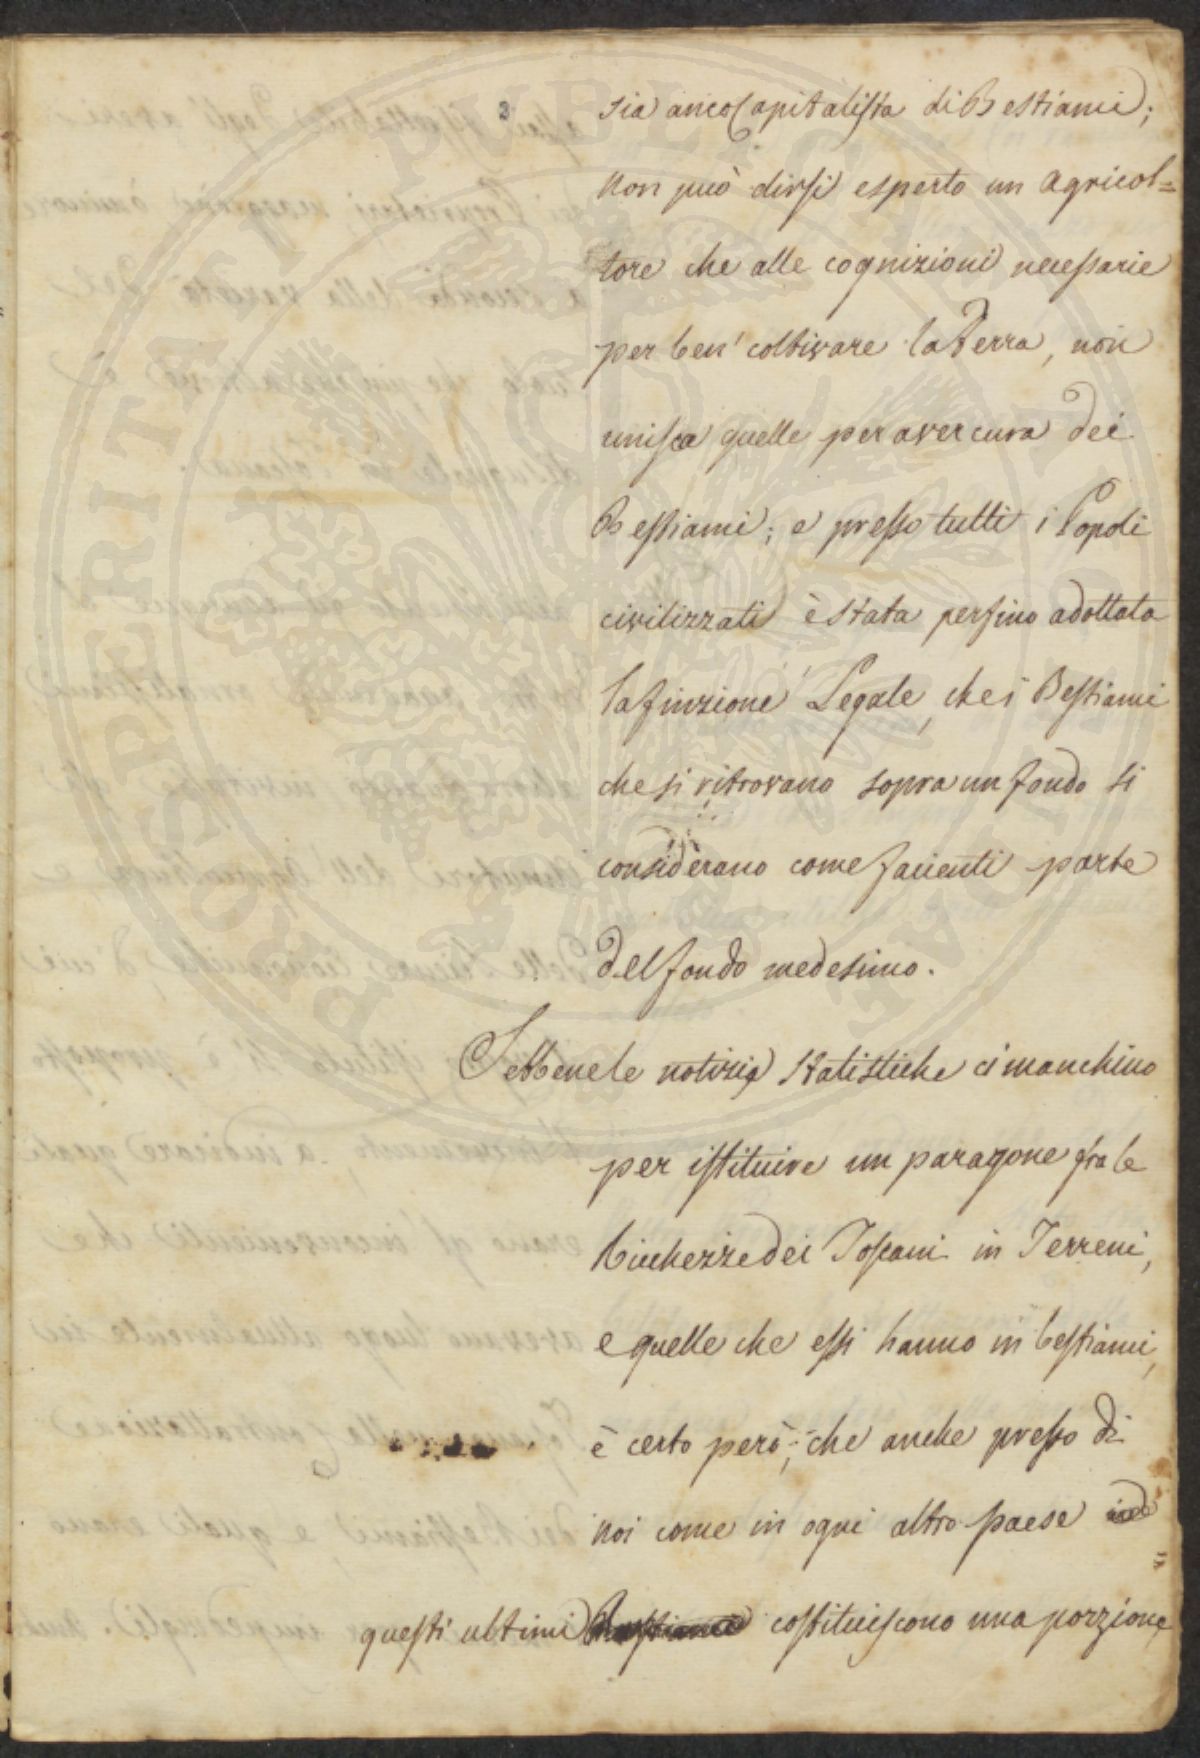 3
sia anco Capitalista di Bestiami;
non può dirsi esperto un Agricol=
tore che alle cognizioni necessarie
per ben' coltivare la Terra, non
unisca quelle per aver cura dei
Bestiami; e presso tutti i Popoli
civilizzati è stata perfino adottata
la finzione Legale, che i Bestiami
che si ritrovano sopra un fondo si
considerano come facienti parte
del fondo medesimo.
Sebbene le notizie statistiche ci manchino
per istituire un paragone fra le
Ricchezze dei Toscani in Terreni,
e quelle che essi hanno in bestiami,
è certo però, che anche presso di
noi come in ogni altro paese
questi ultimi costituiscono una porzione
PROSPERITATI PUBLICAE AUGENDAE